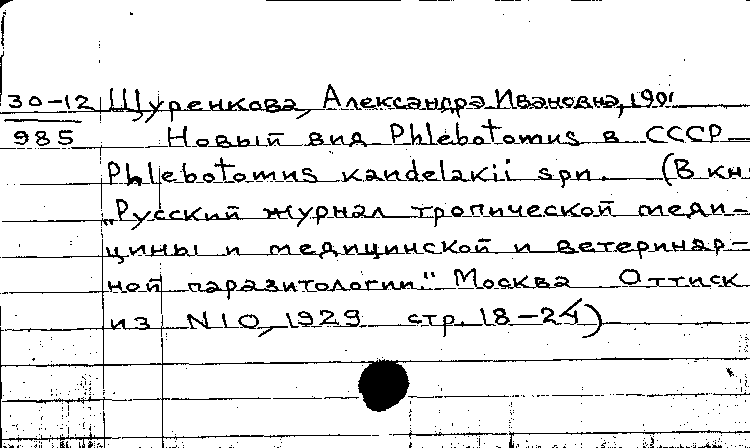 30-12 Щуренкова, Александра Ивановна, 1901
985 Новый вид Phlebotomus в СССР
Phlebotomus kandelakii spn. (В кн
„Русский журнал тропической меди-
цины и медицинской и ветеринар-
ной паразитологии." Москва Оттиск
из N10, 1929 стр. 18-24)